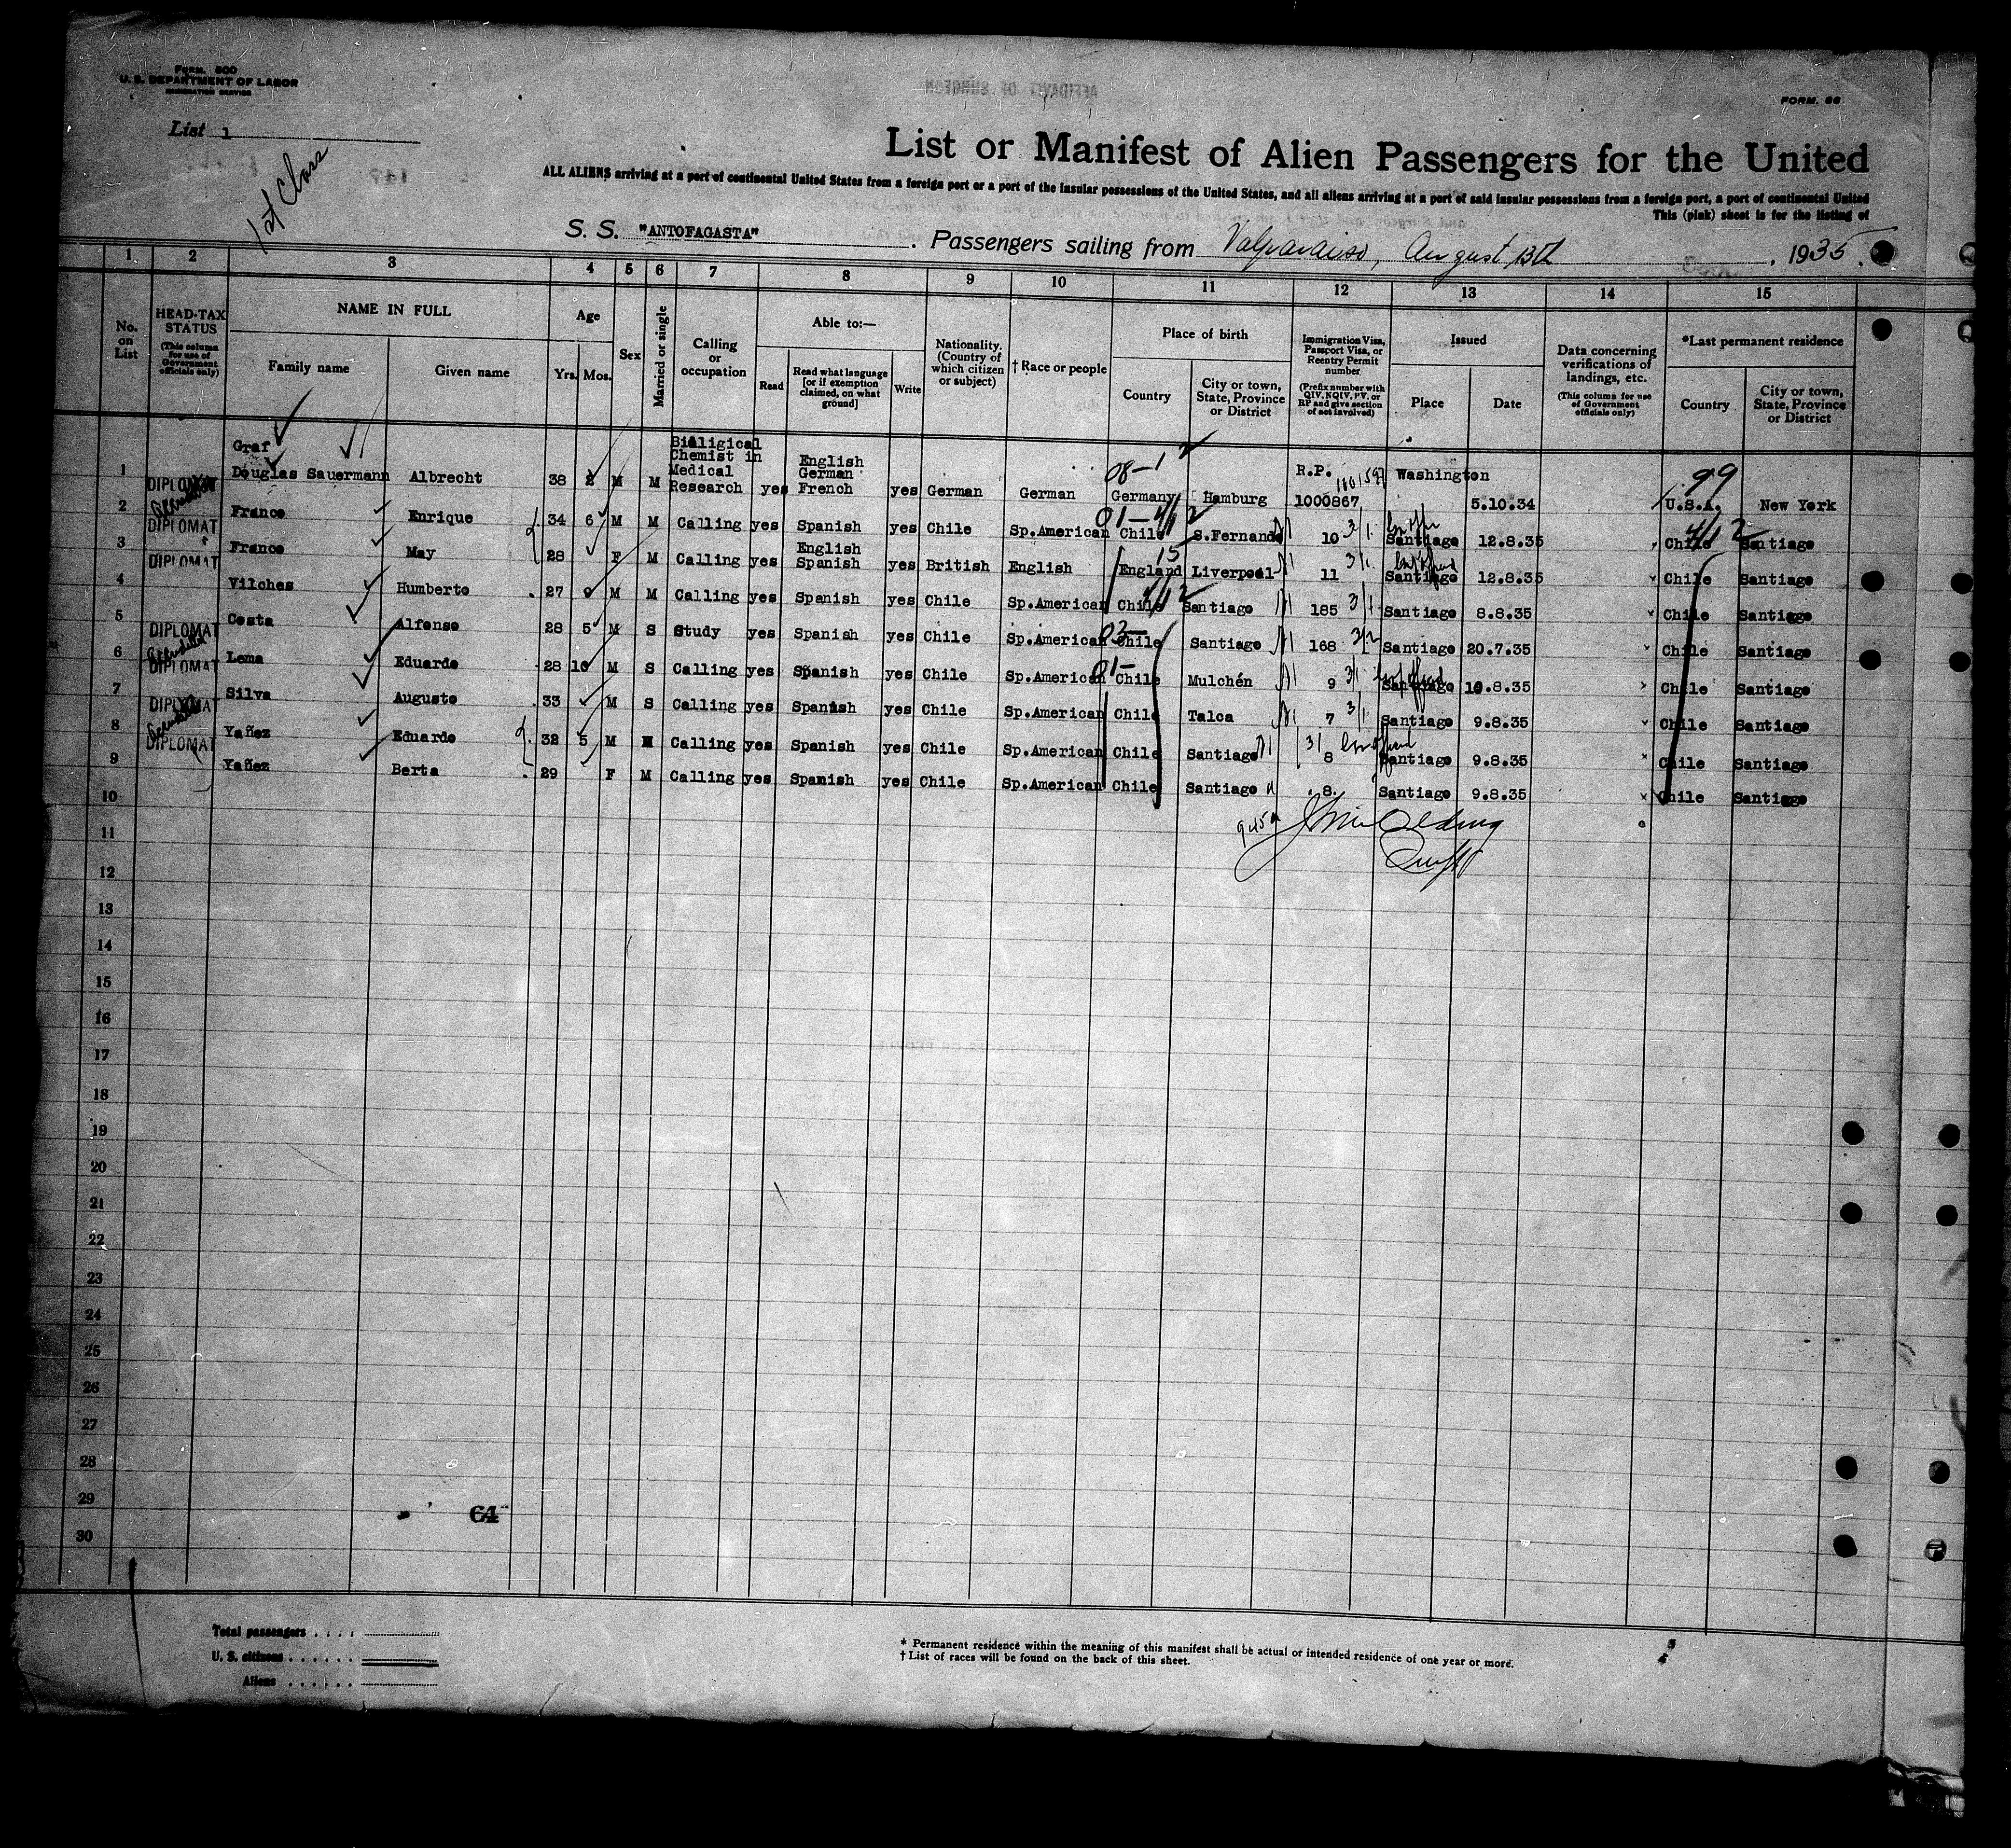 FORM. 500
U. S. DEPARTMENT OF LABOR
IMMIGRATION SERVICE
FORM. 86
List 1
1st Class
AFFIDAVIT OF SURGEON
147
List or Manifest of Alien Passengers for the United
ALL ALIENS arriving at a port of continental United States from a foreign port or a port of the insular possessions of the United States, and all aliens arriving at a port of said insular possessions from a foreign port, a port of continental United
This (pink) sheet is for the listing of
S. S. "ANTOFAGASTA". Passengers sailing from Valparaiso, August 13th, 1935.
1 2 3 4 5 6 7 8 9 10 11 12 13 14 15
No. on List
HEAD-TAX STATUS (This column for use of Government officials only)
NAME IN FULL
Family name
Given name
Age
Yrs. Mos.
Sex
Married or single
Calling or occupation
Able to:—
Read
Read what language [or if exemption claimed, on what ground]
Write
Nationality. (Country of which citizen or subject)
† Race or people
Place of birth
Country
City or town, State, Province or District
Immigration Visa, Passport Visa, or Reentry Permit number
(Prefix number with QIV, NQIV, PV, or RP and give section of act involved)
Issued
Place
Date
Data concerning verifications of landings, etc.
(This column for use of Government officials only)
*Last permanent residence
Country
City or town, State, Province or District
1 Graf Douglas Sauermann Albrecht 38 2 M M Bioligical Chemist in Medical Research yes English German French yes German German 08-1 Germany Hamburg R.P. 1000867 1801597 Washington 5.10.34 99 U.S.A. New York
2 DIPLOMAT Franco Enrique 34 6 M M Calling yes Spanish yes Chile Sp.American 01- Chile S.Fernando 10 3/1 Santiago 12.8.35 Chile Santiago
3 DIPLOMAT Franco May 28 F M Calling yes English Spanish yes British English 15 England Liverpool 11 3/1 Santiago 12.8.35 Chile Santiago
4 DIPLOMAT Vilches Humberto 27 9 M M Calling yes Spanish yes Chile Sp.American Chile Santiago 185 3/1 Santiago 8.8.35 Chile Santiago
5 Costa Alfonso 28 5 M S Study yes Spanish yes Chile Sp.American 03- Chile Santiago 168 3/2 Santiago 20.7.35 Chile Santiago
6 DIPLOMAT DIPLOMAT Lema Eduardo 28 10 M S Calling yes Spanish yes Chile Sp.American 01- Chile Mulchén 9 3/1 Santiago 10.8.35 Chile Santiago
7 DIPLOMAT Silva Augusto 33 M S Calling yes Spanish yes Chile Sp.American Chile Talca 7 3/1 Santiago 9.8.35 Chile Santiago
8 DIPLOMAT Yañez Eduardo 32 5 M M Calling yes Spanish yes Chile Sp.American Chile Santiago 8 3/ Santiago 9.8.35 Chile Santiago
9 Yañez Berta 29 F M Calling yes Spanish yes Chile Sp.American Chile Santiago 8. Santiago 9.8.35 Chile Santiago
10
11
12
13
14
15
16
17
18
19
20
21
22
23
24
25
26
27
28
29
30
64
Total passengers . . . .
U. S. citizens . . . . . .
Aliens . . . . . .
* Permanent residence within the meaning of this manifest shall be actual or intended residence of one year or more.
† List of races will be found on the back of this sheet.